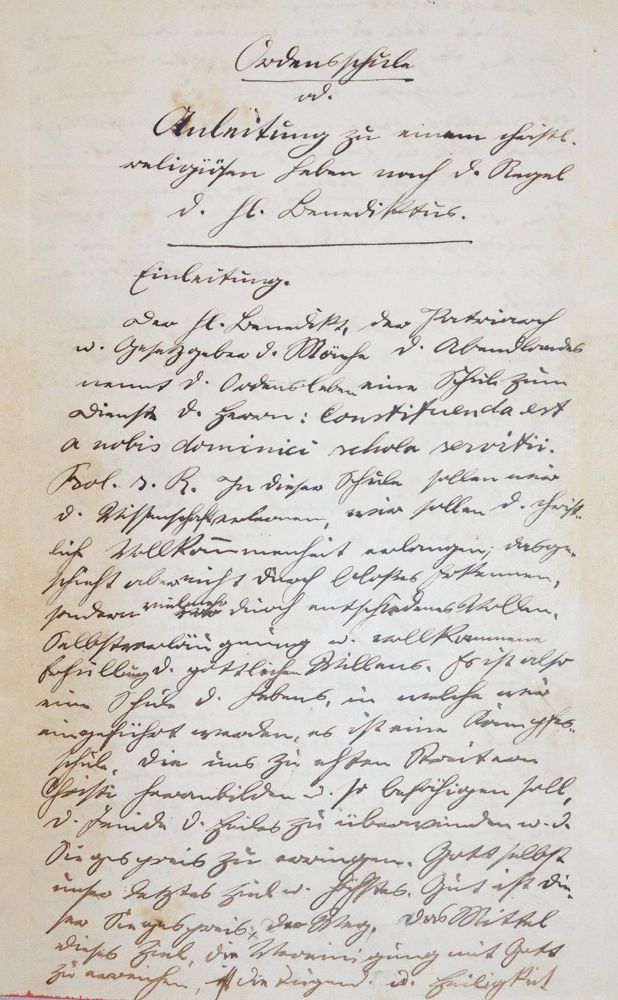 Ordensschule
od.
Anleitung zu einem christl.
religiösen Leben nach d. Regel
d. hl. Benediktus.
Einleitung.
Der hl. Benedikt, der Patriarch
u. Gesetzgeber d. Mönche d. Abendlandes
nennt d. Ordensleben eine Schule zum
Dienste d. Herrn: Constituenda est
a nobis dominici schola servitii.
Prol. s. R. In dieser Schule sollen wir
d. Wissenschaft erlernen, wir sollen d. christ-
lich Vollkommenheit erlangen; das ge-
schieht aber nicht durch bloßes Erkennen,
sondern vielmehr durch entschiedenes Wollen,
Selbstverläugnung u. vollkommene
Erfüllung d. göttlichen Willens. Es ist also
eine Schule d. Lebens, in welche wir
eingeführt werden, es ist eine Kampfes-
schule, die uns zu ächten Streitern
Christi heranbilden u. so befähigen soll,
d. Feinde d. Heiles zu überwinden u. d.
Siegespreis zu erringen. Gott selbst
unser letztes Ziel u. höchstes Gut ist die-
ser Siegespreis, der Weg, das Mittel
dieses Ziel, die Vereinigung mit Gott
zu erreichen, ist die Tugend u. Heiligkeit